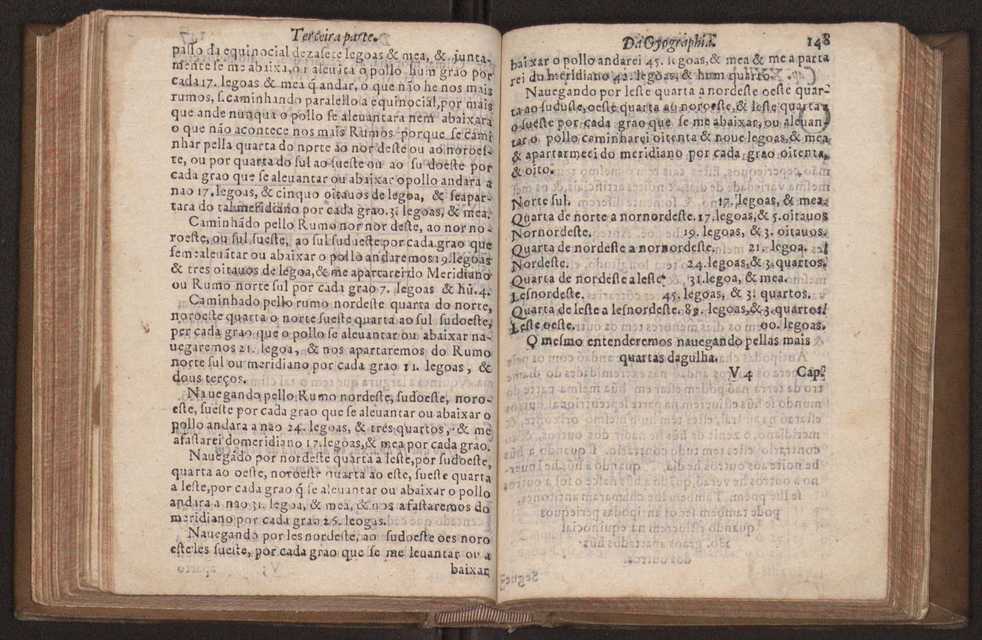 Terceira parte.
passo da equinocial dezasete legoas & mea, & junta-
mente se me abaixa, ou aleuãta o pollo hum grao por
cada 17. legoas & mea q̃ andar, o que não he nos mais
rumos, s. caminhando parallelo a equinocial, por mais
que ande nunqua o pollo se aleuantara nem abaixara
o que não acontece nos mais Rumos porque se cami
nhar pella quarta do norte ao nordeste ou ao noroes-
te, ou por quarta do sul ao sueste ou ao sudoeste por
cada grao que se aleuantar ou abaixar o pollo andara a
nao 17. legoas, & cinquo oitauos de legoa, & se apar-
tara do tal meridiano por cada grao. 3. legoas, & mea.
Caminhãdo pello Rumo nornordeste, ao norno-
roeste, ou sul sueste, ao sul sudueste por cada grao que
se me aleuãtar ou abaixar o pollo andaremos 19. legoas
& tres oitauos de legoa, & me apartarei do Meridiano
ou Rumo norte sul por cada grao 7. legoas & hũ. 4.
Caminhado pello rumo nordeste quarta do norte,
noroeste quarta o norte sueste quarta ao sul sudoeste,
per cada grao que o pollo se aleuantar ou abaixar na-
uegaremos 21. legoa, & nos apartaremos do Rumo
norte sul ou meridiano por cada grao 11. legoas, &
dous terços.
Nauegando pello Rumo nordeste, sudoeste, noro-
este, sueste por cada grao que se aleuantar ou abaixar o
pollo andara a nao 24. legoas, & tres quartos, & me
afastarei do meridiano 17. legoas, & mea por cada grao.
Nauegãdo por nordeste quarta a leste, por sudoeste,
quarta ao oeste, noroeste quarta ao este, sueste quarta
a leste, por cada grao q̃ se aleuantar ou abaixar o pollo
andara a nao 31. legoa, & mea, & nos afastaremos do
meridiano por cada grao 25. leogas.
Nauegando por les nordeste, ao sudoeste oes noro
este les sueste, por cada grao que se me leuantar ou a
baixar
Da Gyographia. 148
baixar o pollo andarei 45. legoas, & mea & me aparta
rei do meridiano 42. legoas, & hum quarto.
Nauegando por leste quarta a nordeste oeste quar-
ta ao suduste, oeste quarta ao noroeste, & leste quarta
o sueste por cada grao que se me abaixar, ou aleuan-
tar o pollo caminharei oitenta & noue legoas, & mea
& apartarmeei do meridiano por cada grao oitenta,
& oito.
Norte sul. 17. legoas, & mea.
Quarta de norte a nornordeste. 17. legoas, & 5. oitauos
Nornordeste. 19. legoas, & 3. oitauos.
Quarta de nordeste a nornordeste. 21. legoa.
Nordeste. 24. legoas, & 3. quartos.
Quarta de nordeste a leste. 31. legoa, & mea.
Lesnordeste. 45. legoas, & 3. quartos.
Quarta de leste a lesnordeste. 89. legoas, & 3. quartos.
Leste oeste. 00. legoas.
O mesmo entenderemos nauegando pellas mais
quartas dagulha.
V 4 Cap.